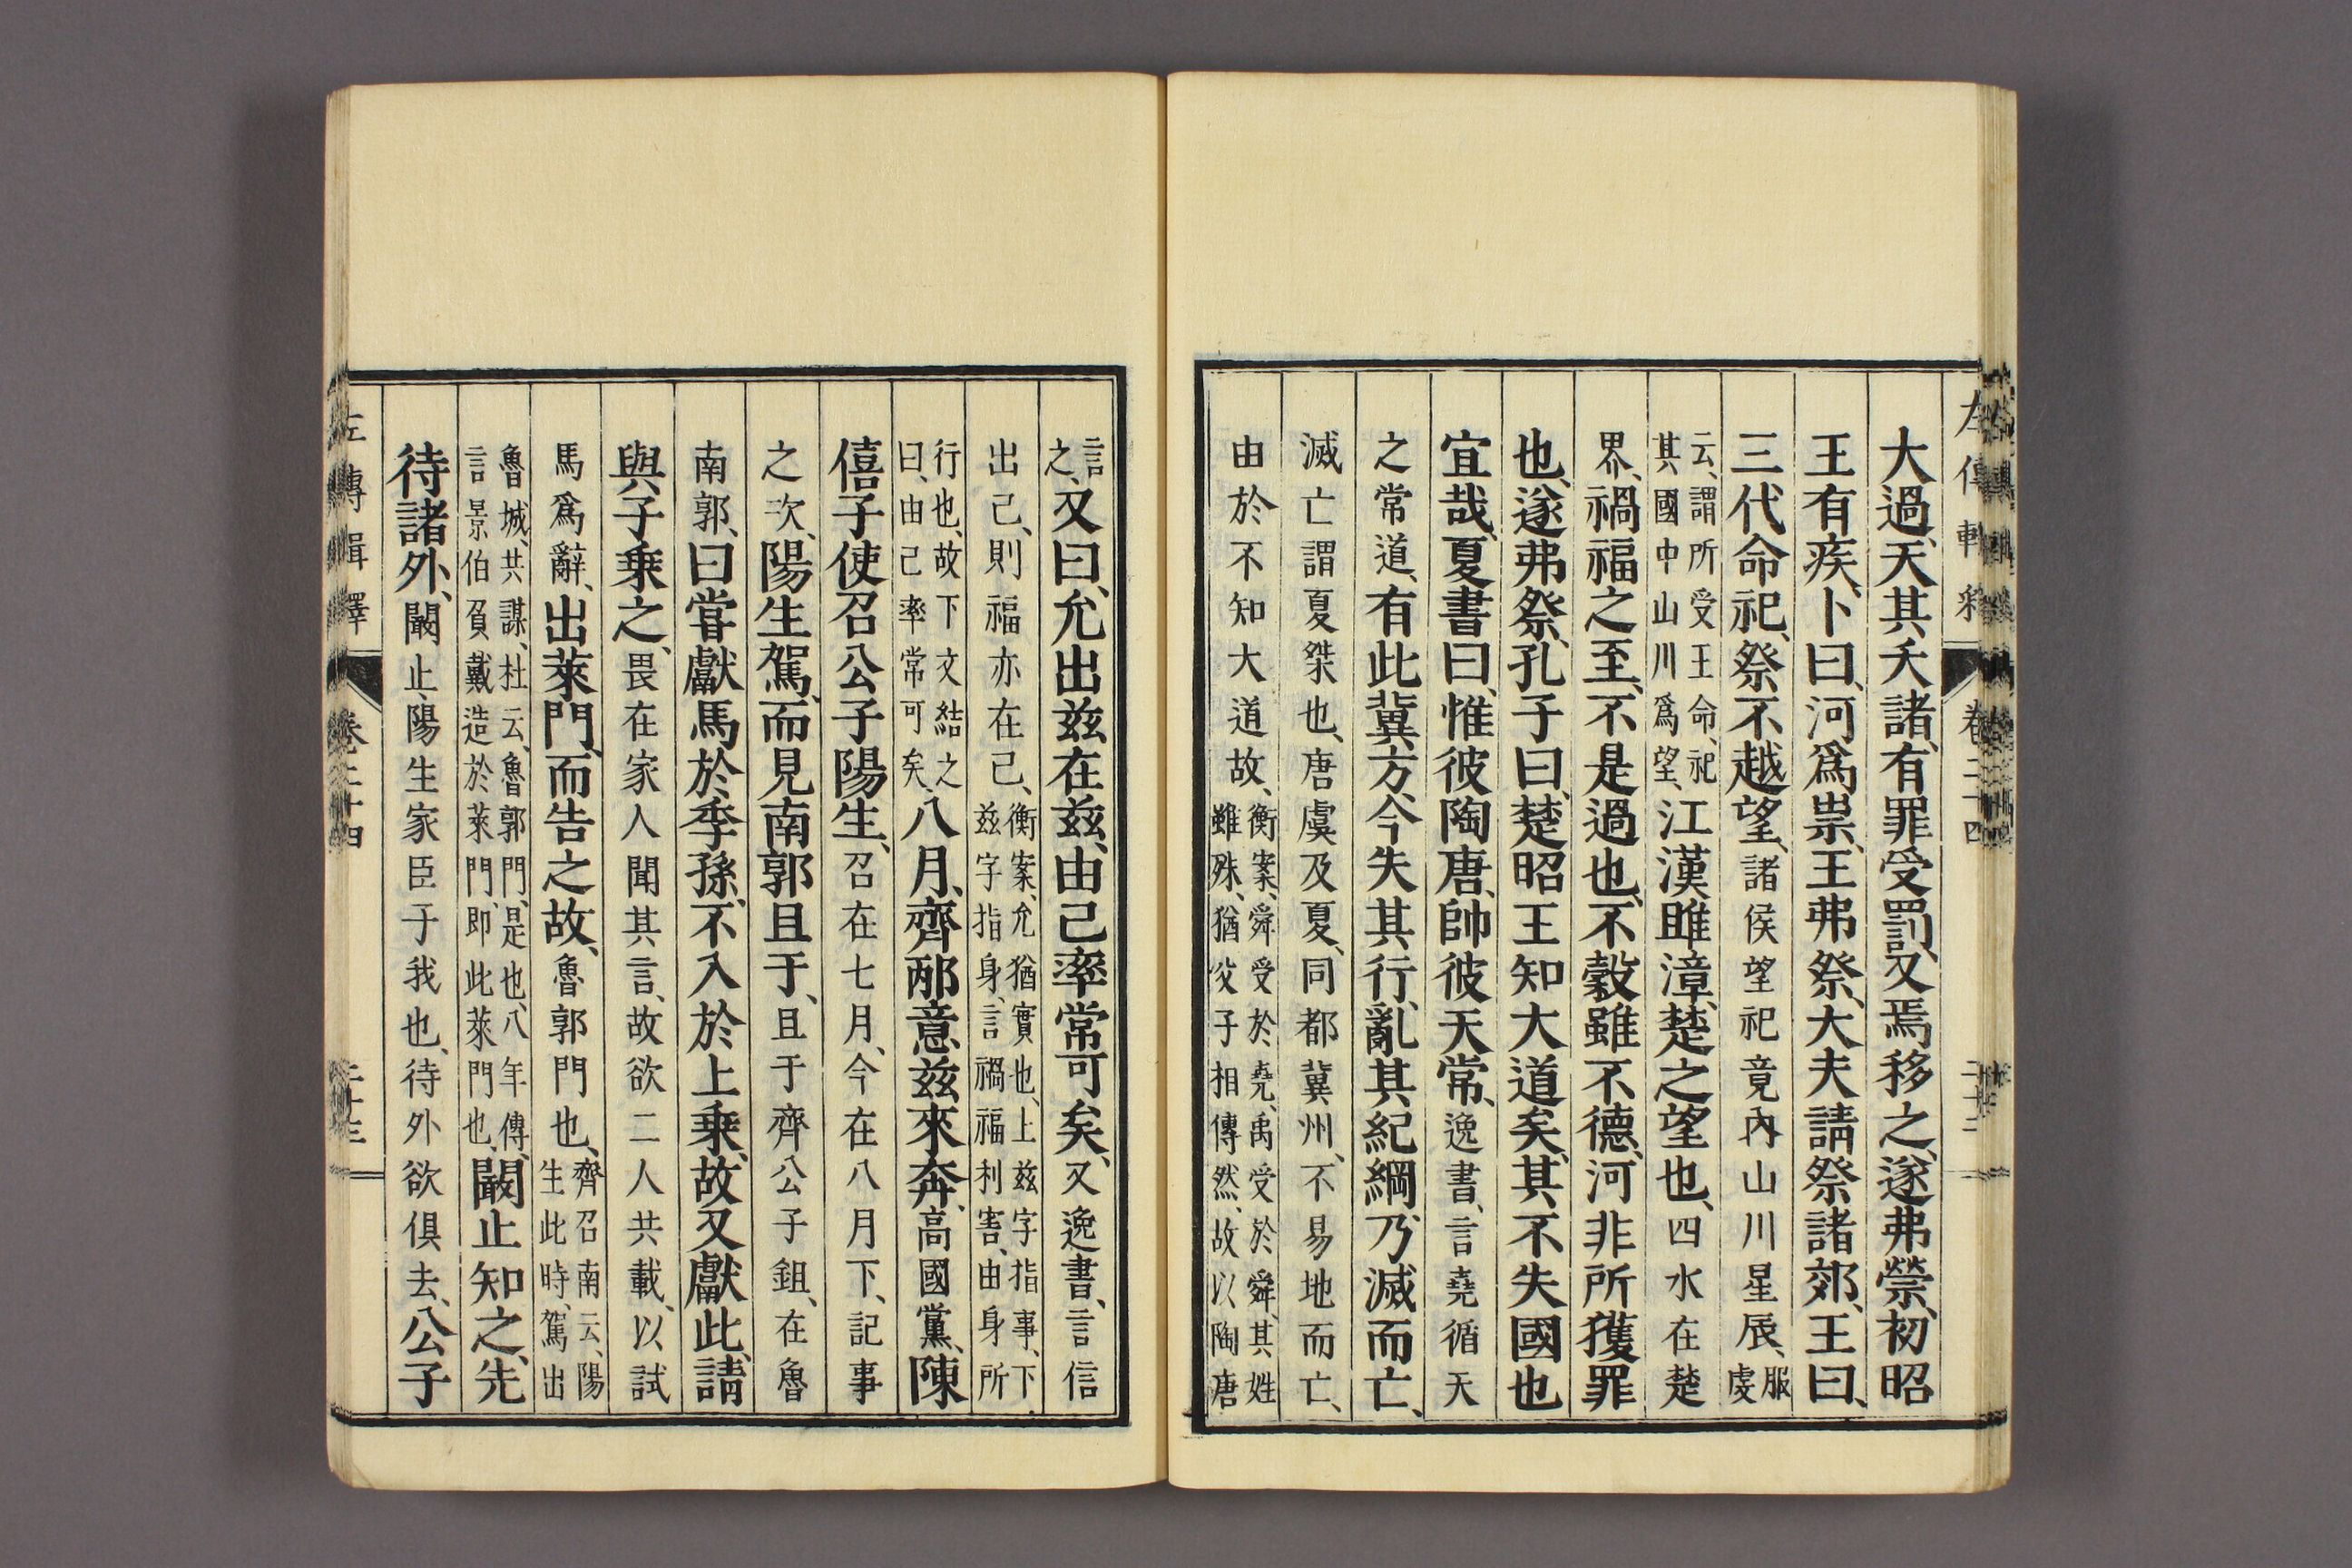 左傳輯釋
卷二十四
大過、天其夭諸、有罪受罰、又焉移之、遂弗禜、初昭
王有疾、卜曰、河爲祟、王弗祭、大夫請祭諸郊、王曰、
三代命祀、祭不越望、諸侯望祀竟內山川星辰、服虔
云、謂所受王命、祀其國中山川爲望、江漢雎漳、楚之望也、四水在楚
界、禍福之至、不是過也、不穀雖不德、河非所獲罪
也、遂弗祭、孔子曰、楚昭王知大道矣、其不失國也
宜哉、夏書曰、惟彼陶唐、帥彼天常、逸書、言堯循天
之常道、有此冀方、今失其行、亂其紀綱、乃滅而亡、
滅亡謂夏桀也、唐虞及夏、同都冀州、不易地而亡、
由於不知大道故、衡案、舜受於堯、禹受於舜、其姓雖殊、猶父子相傳然、故以陶唐
言之、又曰、允出茲在茲、由己率常可矣、又逸書、言信
出己、則福亦在己、衡案、允猶實也、上茲字指事、下茲字指身、言禍福利害、由身所
行也、故下文結之曰、由己率常可矣、八月、齊邴意茲來奔、高國黨、陳
僖子使召公子陽生、召在七月、今在八月下、記事
之次、陽生駕、而見南郭且于、且于齊公子鉏、在魯
南郭、曰嘗獻馬於季孫、不入於上乘、故又獻此、請
與子乘之、畏在家人聞其言、故欲二人共載、以試
馬爲辭、出萊門、而告之故、魯郭門也、齊召南云、陽生此時、駕出
魯城、共謀、杜云、魯郭門、是也、八年傳、言景伯負戴造於萊門、即此萊門也、闞止知之、先
待諸外、闞止陽生家臣子我也、待外欲俱去、公子
左傳輯釋
卷二十四
二十三